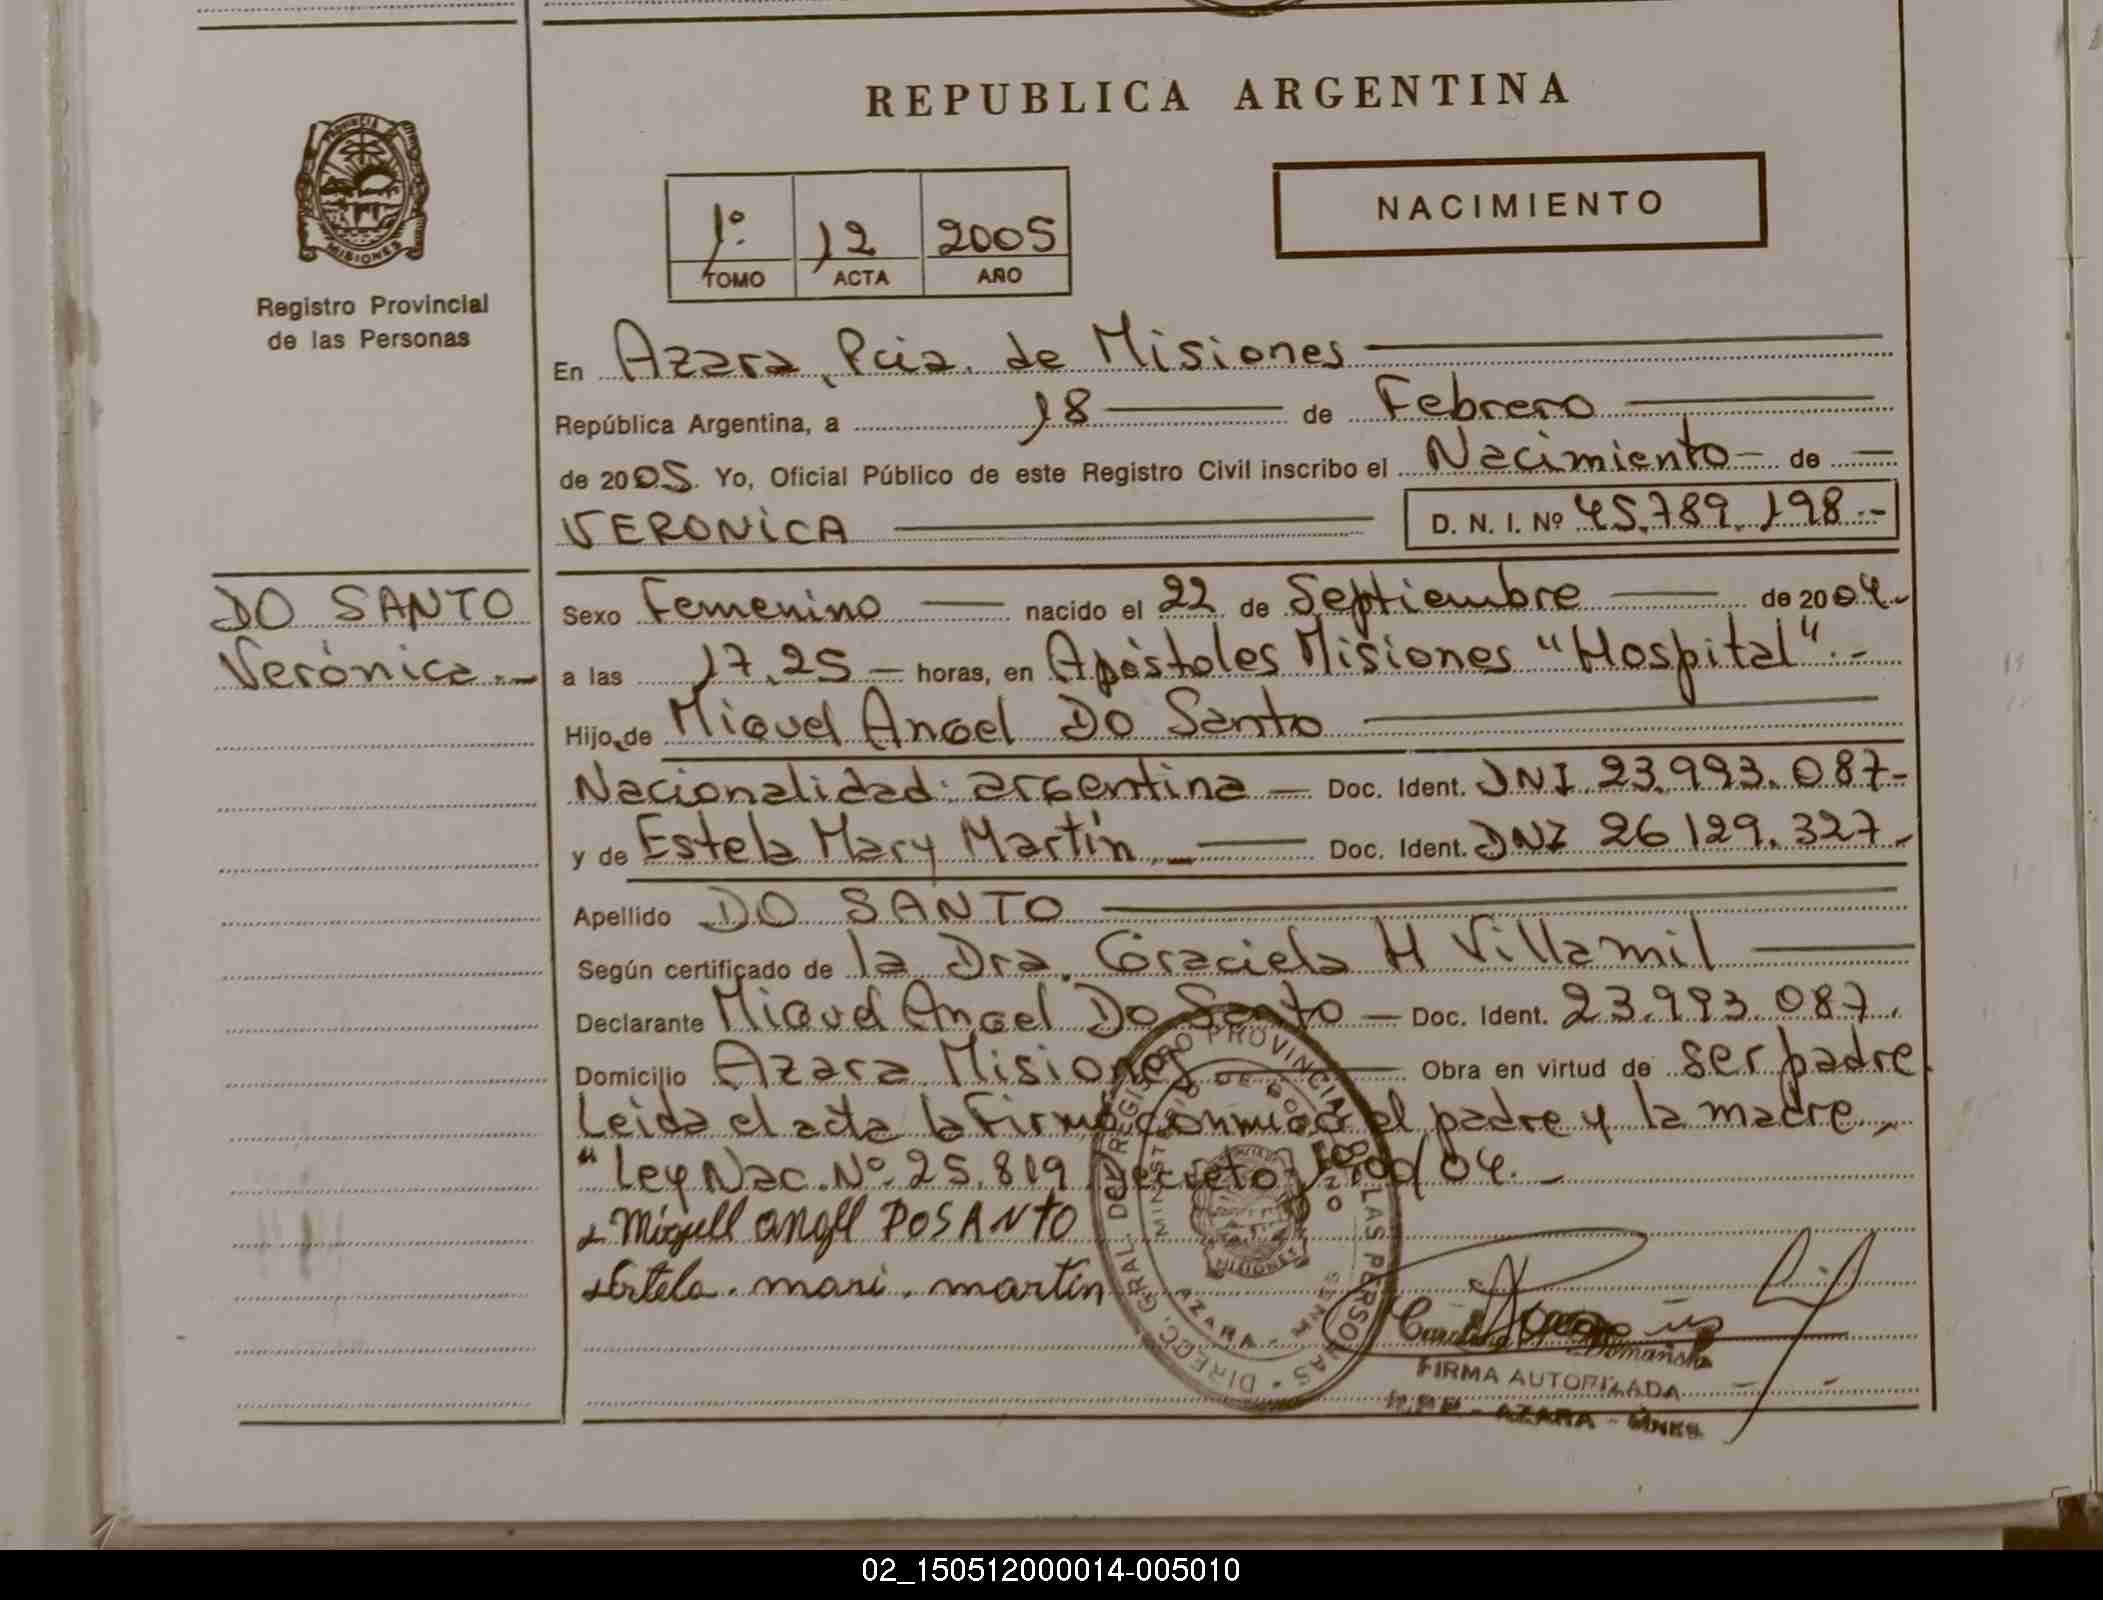 REPUBLICA ARGENTINA
PROVINCIA DE MISIONES
Registro Provincial
de las Personas
1º TOMO
12 ACTA
2005 AÑO
NACIMIENTO
En Azara, Pcia. de Misiones
República Argentina, a 18 de Febrero
de 2005. Yo, Oficial Público de este Registro Civil inscribo el Nacimiento de
VERONICA
D. N. I. Nº 45.789.198.-
DO SANTO
Verónica.-
Sexo Femenino nacido el 22 de Septiembre de 2004.-
a las 17.25 horas, en Apóstoles Misiones "Hospital".-
Hijo de Miguel Angel Do Santo
Nacionalidad: argentina Doc. Ident. DNI 23.993.087-
y de Estela Mary Martín Doc. Ident. DNI 26129.327.-
Apellido DO SANTO
Según certificado de la Dra. Graciela H Villamil
Declarante Miguel Angel Do Santo Doc. Ident. 23.993.087.
Domicilio Azara Misiones Obra en virtud de ser padre
Leida el acta la firma conmigo el padre y la madre.-
"Ley Nac. Nº 25.819 Decreto
Migull angll DOSANTO
Estela. mari. martín
DIREC. GRAL. DEL REGISTRO PROVINCIAL DE LAS PERSONAS
MINISTERIO DE GOBIERNO
MISIONES
AZARA - MNES
FIRMA AUTORIZADA
R.P.P - AZARA - MNES
02_150512000014-005010